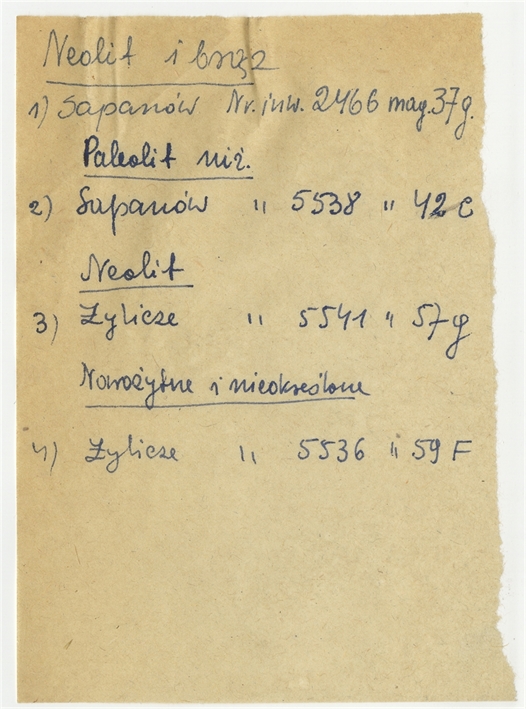 Neolit i brąz
1) Sapanów Nr. inw. 2466 mag. 37g.
Paleolit niż.
2) Sapanów " 5538 " 42 c
Neolit
3) Żylicze " 5541 " 57g
Nowożytne i nieokreślone
4) Żylicze " 5536 " 59 F